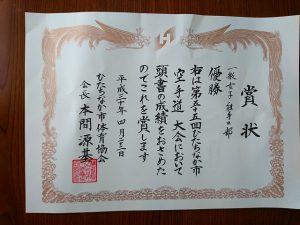 賞状
一般女子組手の部
優勝
右は第五十五回ひたちなか市
空手道大会において
頭書の成績をおさめた
のでこれを賞します
平成三十年四月二十二日
ひたちなか市体育協会
会長 本間源基